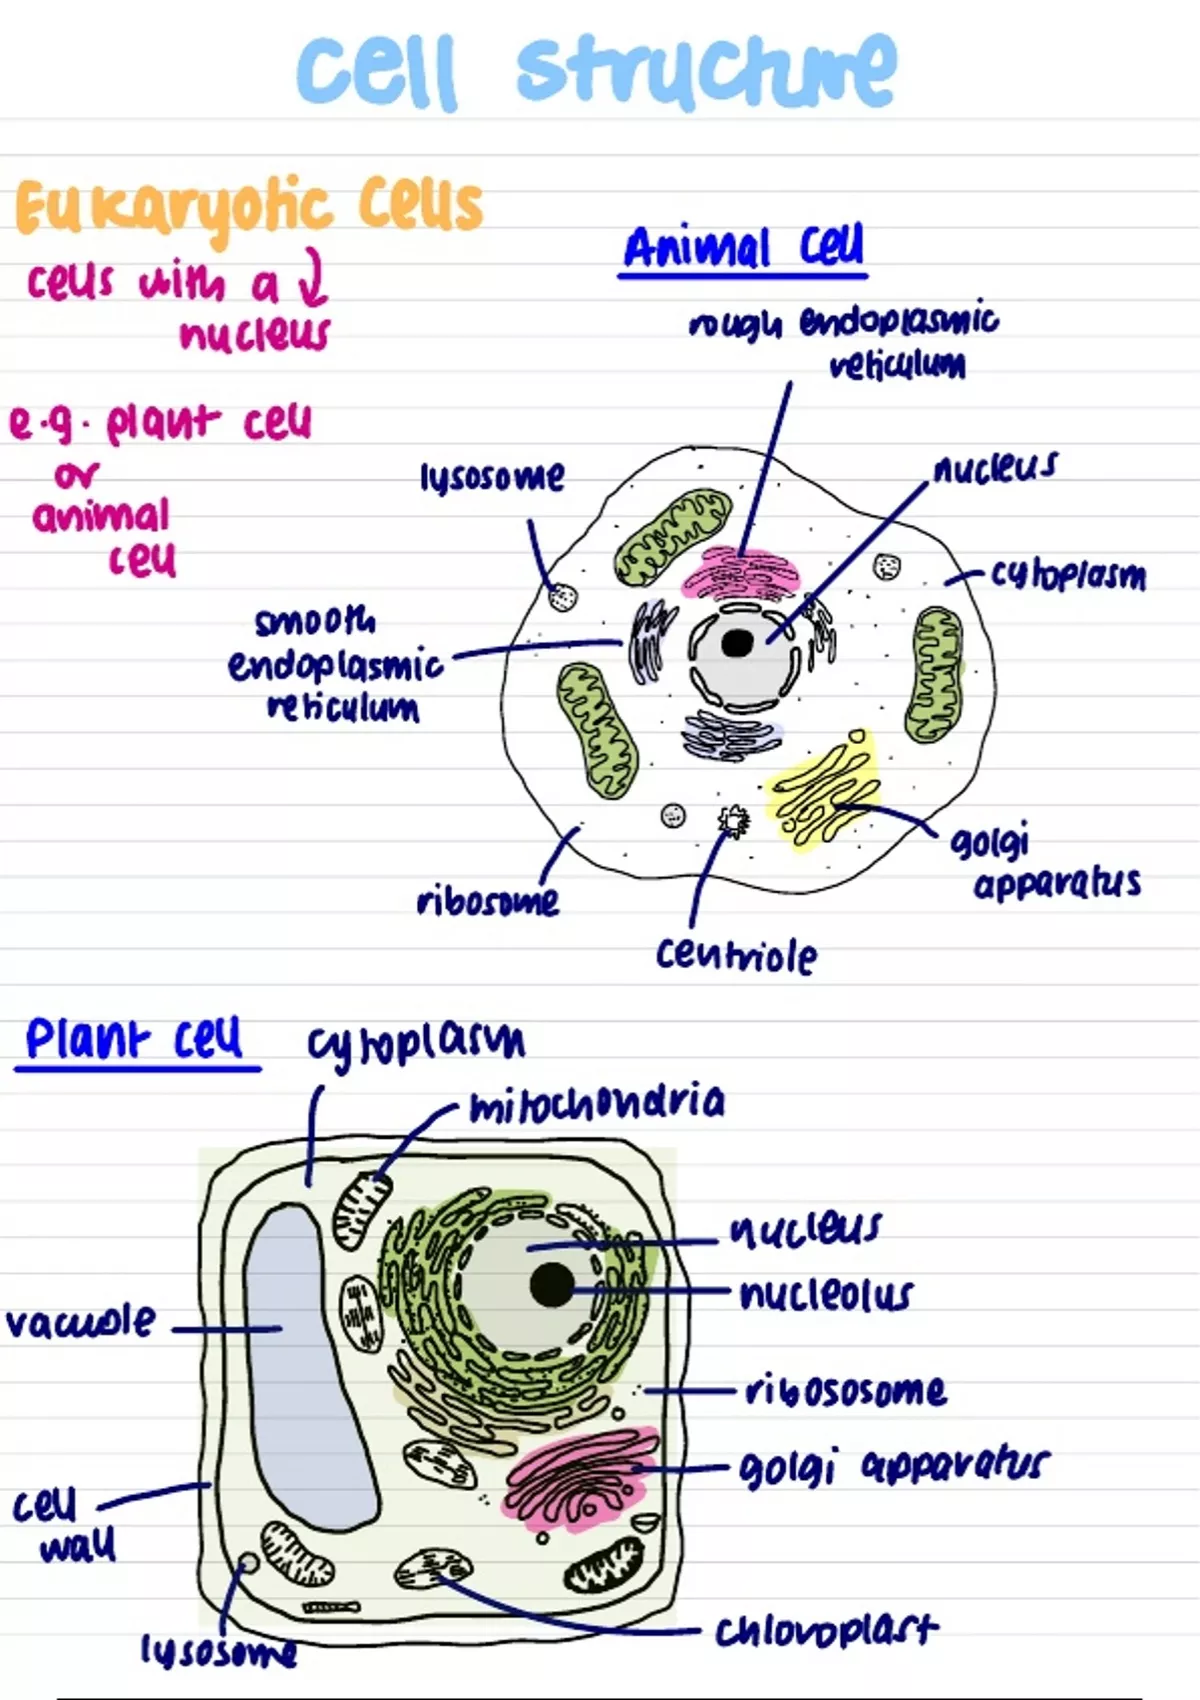 cell structure
Eukaryotic cells
cells with a
nucleus
e.g. plant cell
or
animal
cell
Animal cell
rough endoplasmic
reticulum
lysosome
nucleus
cytoplasm
smooth
endoplasmic
reticulum
golgi
apparatus
ribosome
centriole
Plant cell
cytoplasm
mitochondria
nucleus
nucleolus
vacuole
ribososome
golgi apparatus
cell
wall
chloroplast
lysosome